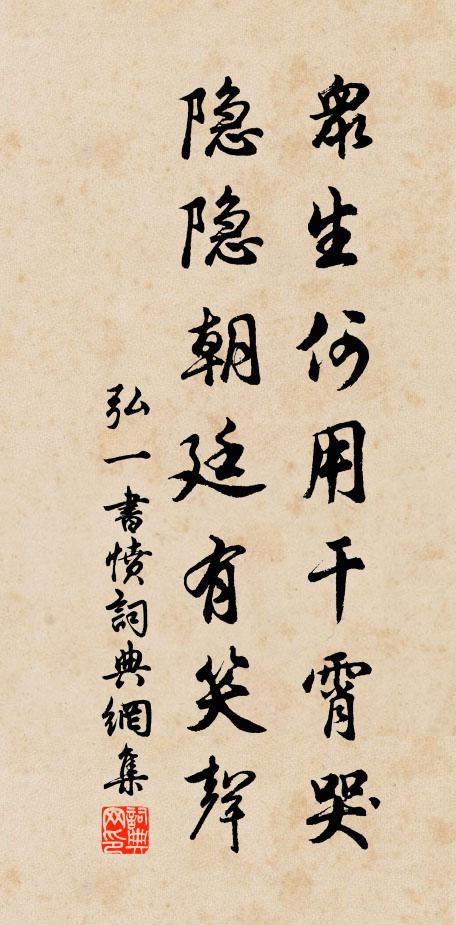 眾生何用干霄哭
隐隐朝廷有笑聲
弘一書憤詞典網集
詞典網印